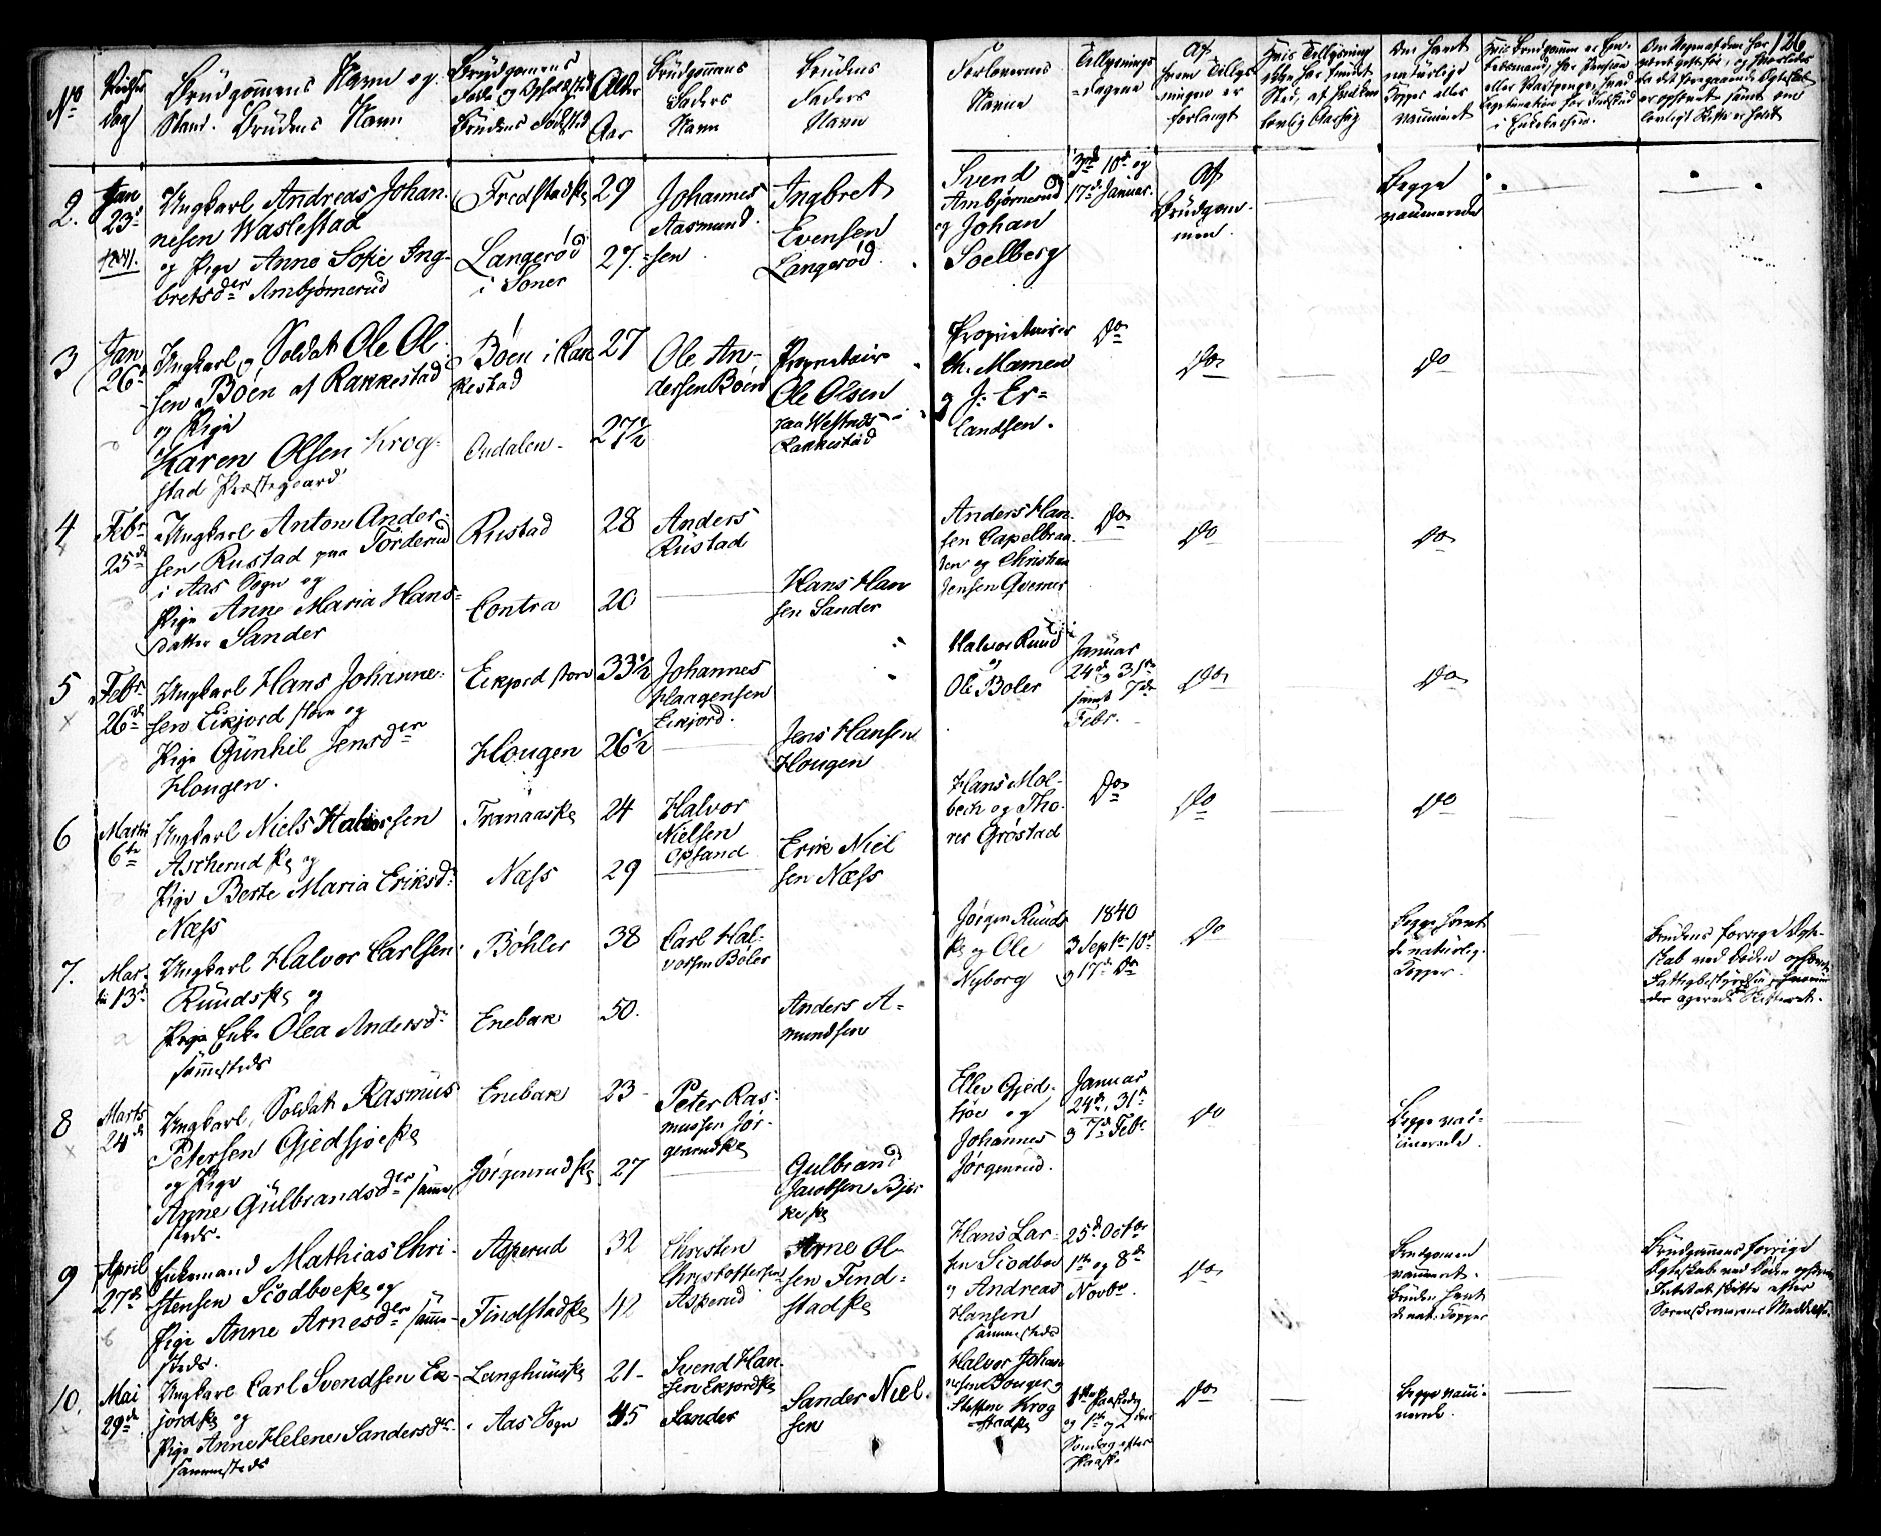 126
No
Vielses Dag
Brudgommens Navn og
Stand. Brudens Navn
Brudgommens
Bruden's Fødested
Alder
Aar
Brudgommens
Faders
Navn
Brudens
Faders
Navn
Forlovernes
Navne
Tillysnings
=dagene
Af
hvem Tillys-
ningen er
forlangt
Om havt
naturlige
Kopper eller
vaccineret
2.
Jan
23d
1841.
Ungkarl Andreas Johan-
nesen Waslestad
og Pige Anne Sofie Ing-
bretsder Ambjørnerud
Fredstadske
Langerød
i Soner
29
27
Johannes
Aasmund-
sen
Ingbret
Evensen
Langerød
Svend
Ambjørnerud
og Johan
Soelberg
3die 10de og
17de Januar.
Af
Brudgom-
men
Begge
vaccinerede
3
Jan
26d
Ungkarl og Soldat Ole Ol-
sen Böen af Rakkestad
og Pige
Karen Olsen Krog-
stad Præstegaard
Böen i Rak
kestad
Oudalen
27
27 1/2
Ole An-
dersen Böen
Proprietair
Ole Olsen
paa Westnes i
Rakkestad
Proprietairer
Ch. Mamen
og J: Er=
landsen.
Do
Do
Do
4
Febr
25d
Ungkarl Anton Ander-
sen Rustad paa Torderud
i Aas Sogn og
Pige Anne Maria Hans=
datter Sander
Rustad
Contra
28
20
Anders
Rustad
Hans Han
sen Sander
Anders Han-
sen Capelbraa-
ten og Christian
Jensen Qverner
Do
Do
Do
5
Febr
26de
Ungkarl Hans Johanne-
sen Eikjord store og
Pige Gunhil Jensder
Hougen.
Eikjord store
Hougen
33 1/2
26 1/2
Johannes
Haagensen
Eikjord.
Jens Hansen
Hougen
Halvor Ruud
og
Ole Boler
Januar
24de 31te
samt 7de
Febr.
Do
Do
6
Martii
6te
Ungkarl Niels Halvorsen
Ascherudske og
Pige Berte Maria Eriksd:
Næss
Tranaaske
Næss
24
29
Halvor
Nielsen
Opsand
Erik Niel
sen Næss
Hans Mol-
bech og Tho-
rer Grøstad
Do
Do
Do
7.
Mar-
tii 13de
Ungkarl Halvor Carlsen
Ruudske og
Pige Enke Olea Andersd:
sammesteds
Böhler
Enebak
38
50.
Carl Hal-
vorsen Böler
Anders A=
mundsen
Jørgen Ruuds
ke og Ole
Nyborg
1840
3 Septr 10de
og 17de Do
Do
Begge havt
de naturlig-
Kopper.
Brudens forrige Ægte-
skab ved Døden ophævet.
8
Marts
24de
Ungkarl, Soldat Rasmus
Petersen Gjedsjøeske
og Pige
Anne Gulbrandsder samme
steds.
Enebak
Jørgenrudske
23
27
Peter Ras-
mussen Jør-
genrudske
Gulbrand
Jacobsen Bjer
keske
Ellev Gjed-
sjøe og
Johannes
Jørgenrud.
Januar
24de, 31te
og 7de Febr
Do
Begge vac-
cinerede.
9
April
27de
Enkemand Mathias Chri-
stensen Siodboeske og
Pige Anne Arnesder samme
steds.
Asperud
Findstadske
32
42
Christen
Christoffersen
Asperud
Arne Ol-
sen Find-
stadske
Hans Lar-
sen Siodboe
og Andreas
Hansen
sammesteds
25de Octbr
1te og 8de
Novbr.
Do
Brudgomen
vaccineret.
Bruden havt
de nat: Kopper
Brudgommens forrige
Ægteskab ved Døden ophævet
10.
Mai
29de
Ungkarl Carl Svendsen Ek-
jordske og
Pige Anne Helene Sandersdr
sammesteds
Langhuuske
i Aas Sogn
21
45
Svend Han-
sen Ekjordske
Sander
Sander Niel-
sen
Halvor Johan
nesen Bonger og
Steffen Krog
stadske
1te Paaskedag
og 1te og 2den
Søndag efter
Paaske
Do
Begge vacci-
nerede.